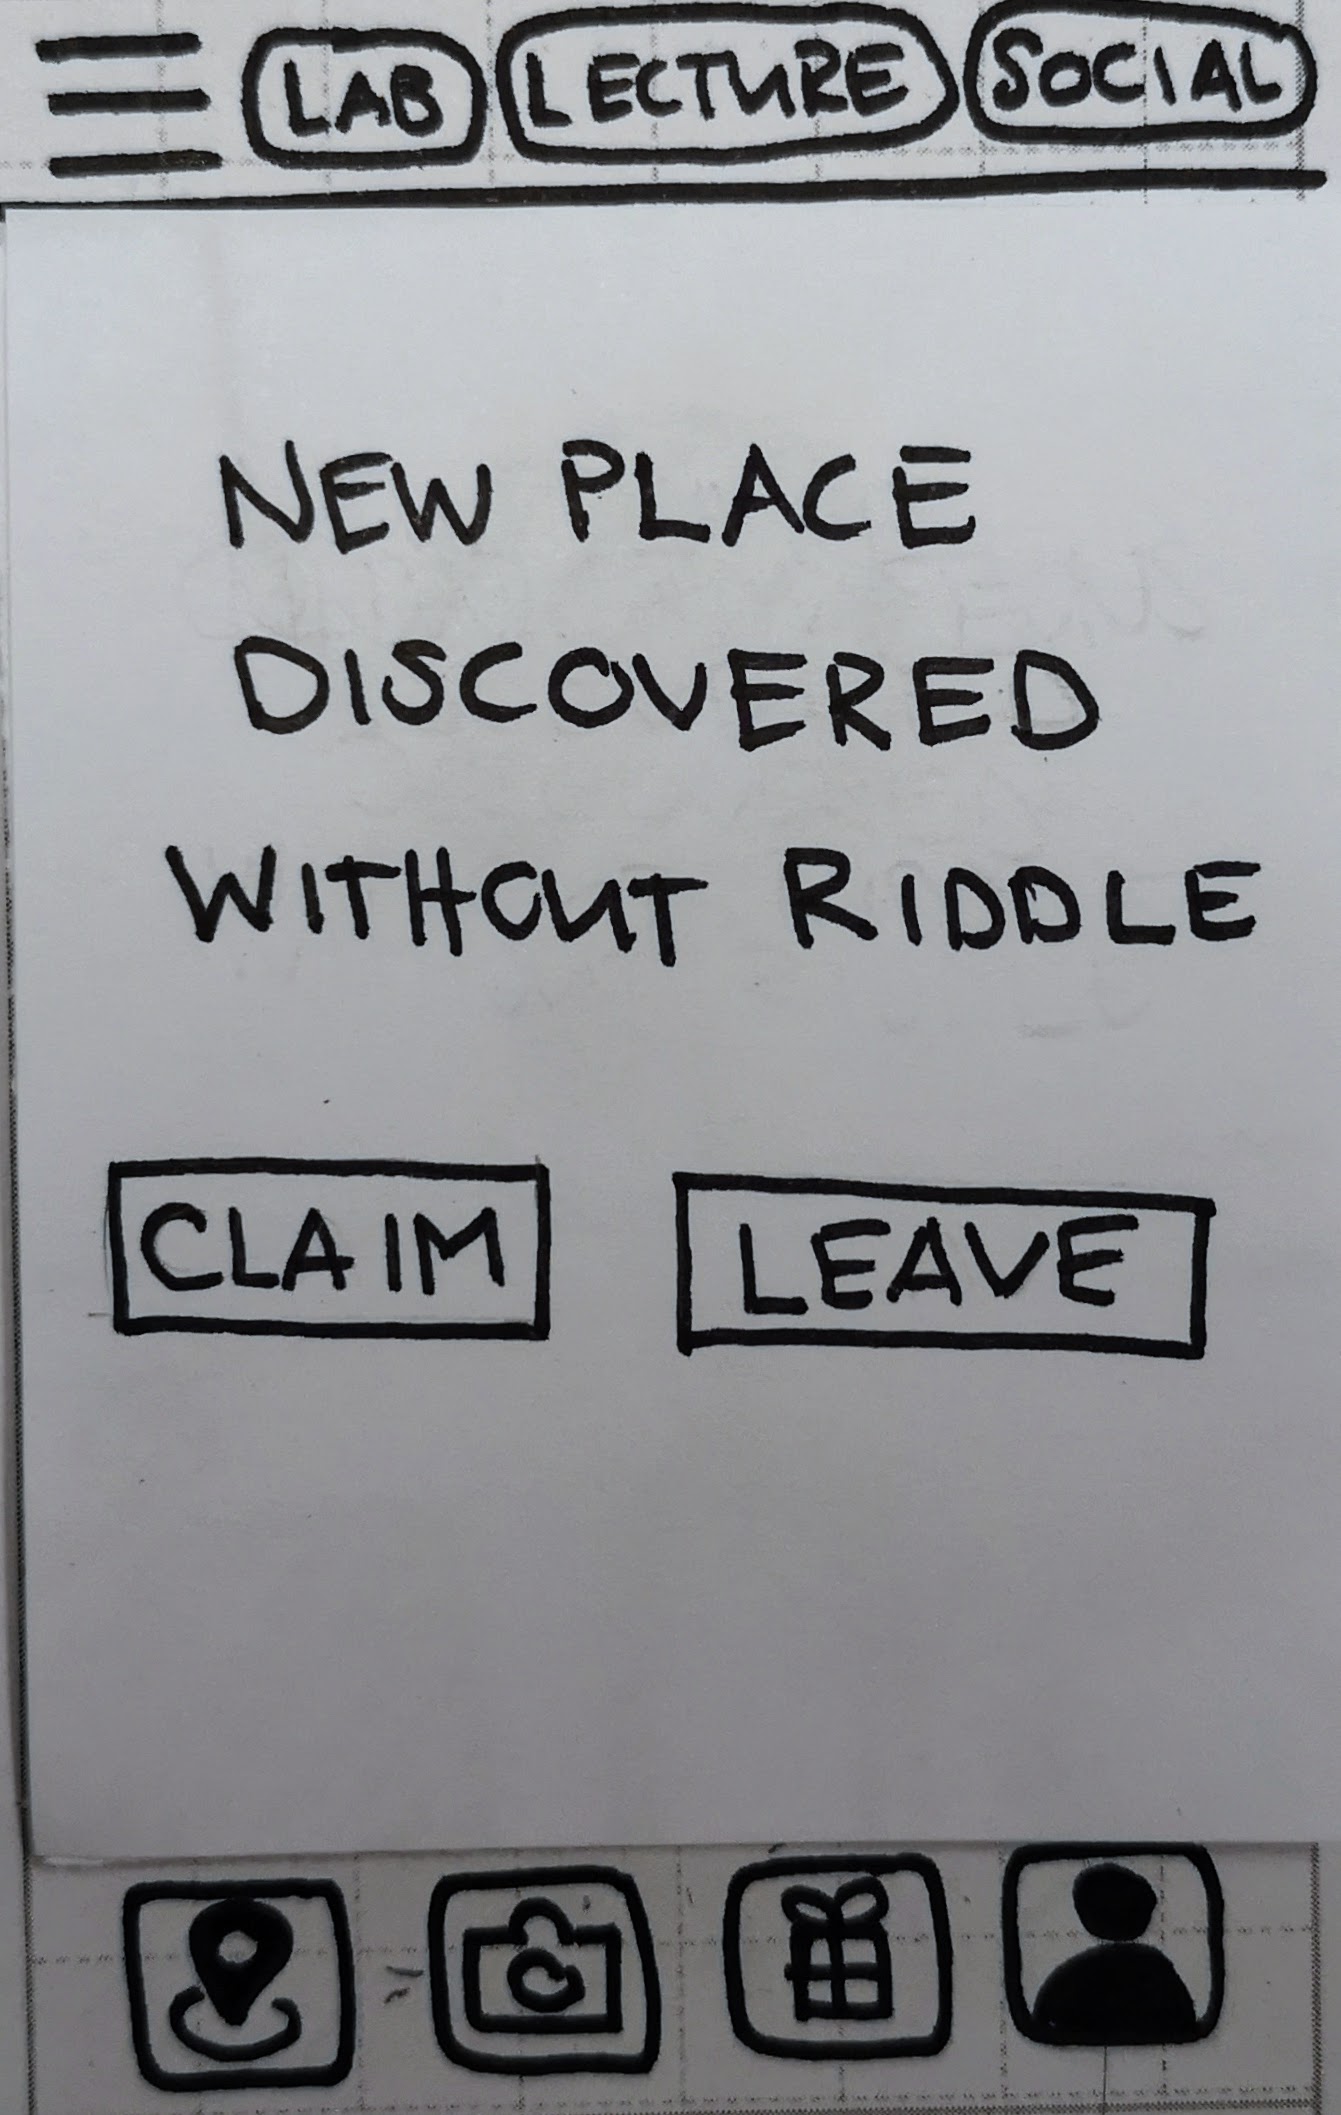 LAB LECTURE SOCIAL
NEW PLACE
DISCOVERED
WITHOUT RIDDLE
CLAIM LEAVE